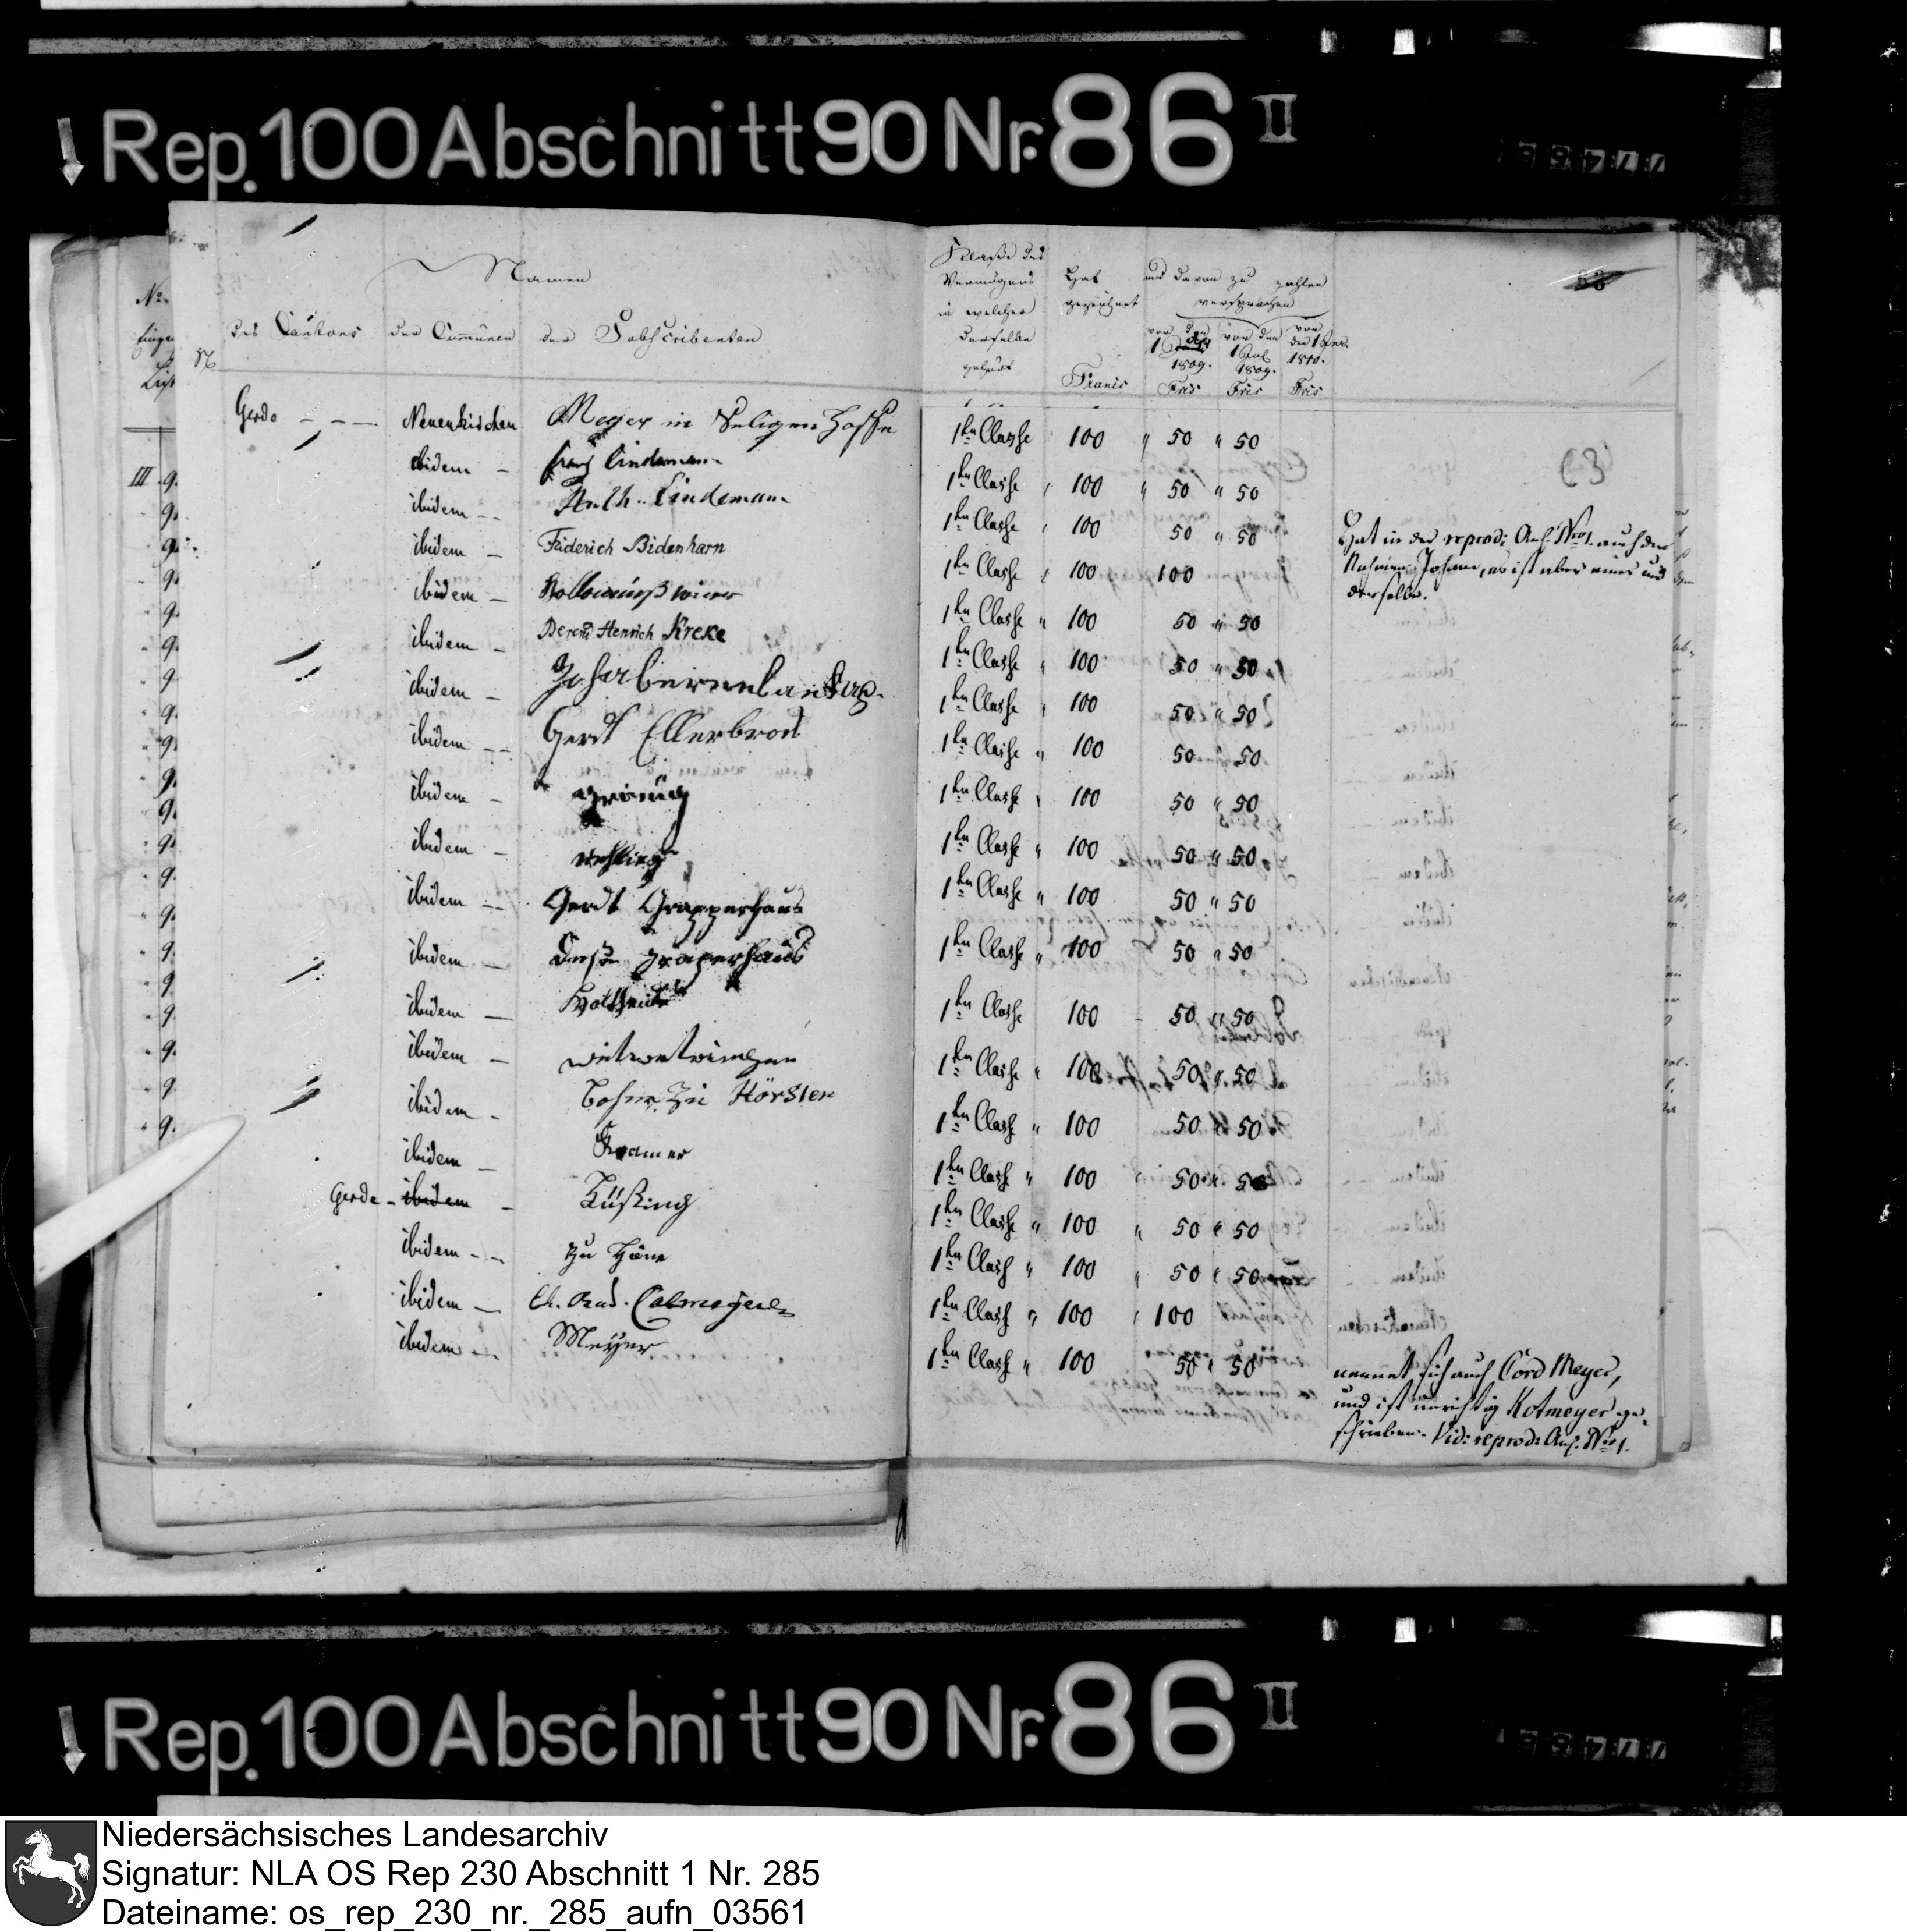 Rep. 100 Abschnitt 90 Nr. 86 II
Namen
des Cantons
der Commünen
der Subscribenten
Klaße des
Vermögens
in welcher
derselbe
gehört
Hat
gezeichnet
Francs
und davon zu zahlen
versprochen
von den
1809.
Frcs
von den
1 Jul
1809.
Frcs
von
den 1 Jan.
1810.
Frcs
63
Gerde - - - Neuenkirchen Meyer in 1ten Classe 100 " 50 " 50
ibidem - Lindeman 1ten Classe " 100 " 50 " 50
ibidem - - Lindeman 1ten Classe " 100 50 " 50
ibidem - Friderich Bidenharn 1ten Classe " 100 100
Hat in der reprod: Anl. No 1. auch den
Nahmen Johan, es ist aber einer und
derselbe.
ibidem - 1ten Classe " 100 50 " 50
ibidem - Berend Henrich Kreke 1ten Classe " 100 50 " 50
ibidem - 1ten Classe " 100 50 " 50
ibidem - - Gerdt Ellerbrock 1ten Classe " 100 50 50
ibidem - Grönüng 1ten Classe " 100 50 " 50
ibidem - 1ten Classe " 100 50 " 50
ibidem - - Gerdt Grapperhaus 1ten Classe " 100 50 " 50
ibidem - graperhaus 1ten Classe " 100 50 " 50
ibidem - 1ten Classe 100 - 50 " 50
ibidem - 1ten Classe " 100 50 " 50
ibidem - zu Hörsten 1ten Class " 100 50 " 50
ibidem - Kramer 1ten Class " 100 50 " 50
Gerde - ibidem - Küßing 1ten Classe " 100 " 50 " 50
ibidem - - zu Höne 1ten Class " 100 " 50 " 50
ibidem - 1ten Class " 100 " 100
ibidem - Meÿer 1ten Class " 100 50 " 50
nennet sich auch Cord Meyer,
und ist unrichtig Kotmeyer ge-
schrieben. Vid: reprod: Anl. No 1.
Rep. 100 Abschnitt 90 Nr. 86 II
Niedersächsisches Landesarchiv
Signatur: NLA OS Rep 230 Abschnitt 1 Nr. 285
Dateiname: os_rep_230_nr._285_aufn_03561